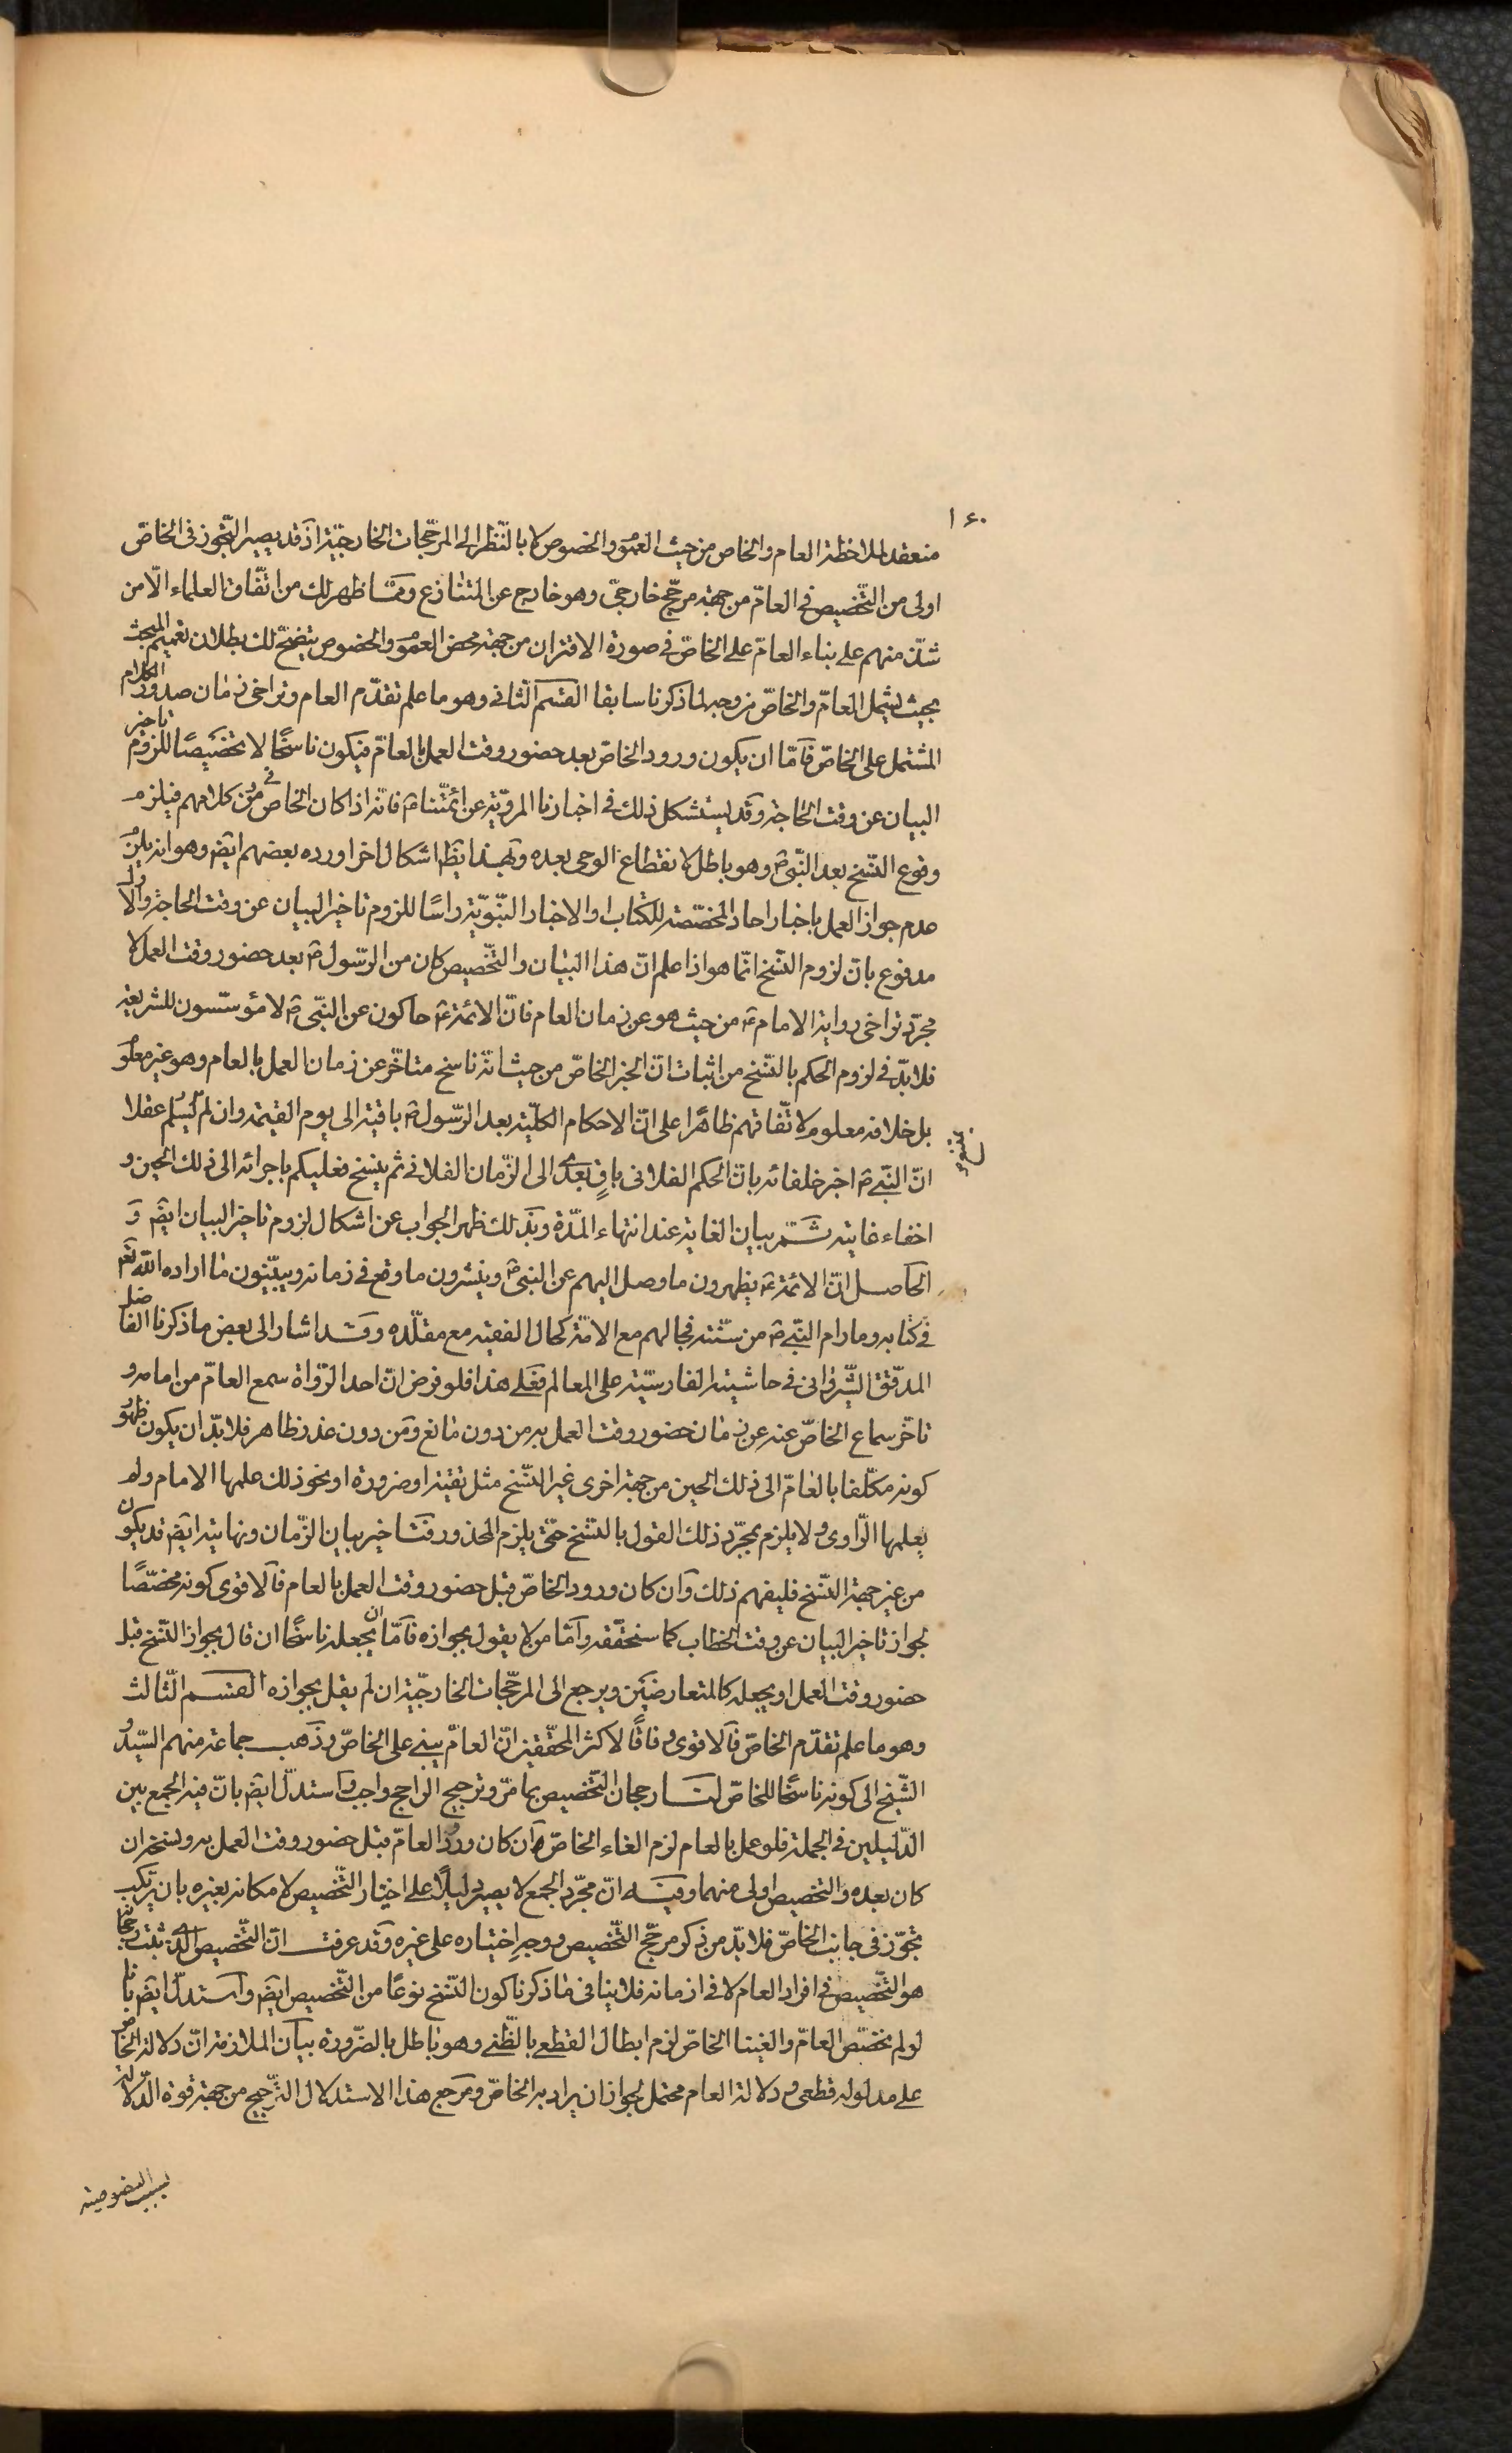 ١٤٠
منعقد لملاحظة العام والخاص من حيث العموم والخصوص لا بالنّظر الى المرجّحات الخارجيّة اذ قد يصير التّجوز فى الخاصّ
اولى من التّخصيص فى العامّ من جهة مرجّح خارجىّ وهو خارج عن المتنازع وممّا ظهر لك من اتّفاق العلماء الّا من
شذّ منهم على بناء العامّ على الخاصّ فى صورة الاقتران من جهة محض العموم والخصوص يتضح لك بطلان تعميم المبحث
بحيث يشمل العامّ والخاصّ من وجه لما ذكرنا سابقا القسم الثانى وهو ما علم تقدّم العام وتراخى زمان صدور الكلام
المشتمل على الخاصّ فامّا ان يكون ورود الخاصّ بعد حضور وقت العمل بالعامّ فيكون ناسخًا لا تخصيصًا للزوم تاخير
البيان عن وقت الحاجة وقد يستشكل ذلك فى اخبارنا المرويّة عن ائمّتنا ع فانّه اذا كان الخاص فى كلامهم فيلزم
وقوع النّسخ بعد النّبى ص وهو باطل لانقطاع الوحى بعده وبهذا يظهر اشكال اخر اورده بعضهم ايض وهو انه يلزم
عدم جواز العمل باخبار احاد المخصّصة للكتاب او الاخبار النّبويّة راسًا للزوم تاخير البيان عن وقت الحاجة والاوّل
مدفوع بانّ لزوم النّسخ انّما هو اذا علم انّ هذا البيان والتّخصيص كان من الرّسول ص بعد حضور وقت العمل لا
مجرّد تراخى رواية الامام ع من حيث هو عن زمان العام فانّ الائمّة ع حاكون عن النّبى ص لا مؤسّسون للشريعة
فلا بدّ فى لزوم الحكم بالنّسخ من اثبات انّ الخبر الخاصّ من حيث انّه ناسخ متاخّر عن زمان العمل بالعام وهو غير معلوم
بل خلافه معلوم لاتّفاقهم ظاهرًا على انّ الاحكام الكلّية بعد الرّسول ص باقية الى يوم القيمة وان لم يسلم عقلا
انّ النّبى ص اخبر خلفائه بانّ الحكم الفلانى باقٍ بعدى الى الزّمان الفلانى ثم ينسخ فعليكم باجرائه الى ذلك الحين و
اخفاء غايته ثمّ بيان الغاية عند انتهاء المدّة وبذلك ظهر الجواب عن اشكال لزوم تاخير البيان ايض و
الحاصل انّ الائمّة ع يظهرون ما وصل اليهم عن النبى ص وينشرون ما وقع فى زمانه ويبيّنون ما اراده الله تعم
فى كتابه وما رام النّبى ص من سنّته فحالهم مع الامّة كحال الفقيه مع مقلّده وقد اشار الى بعض ما ذكرنا الفاضل
المدقّق الشّروانى فى حاشيته الفارسيّة على المعالم فعلى هذا فلو فرض انّ احد الرّواة سمع العامّ من امامه و
تاخّر سماع الخاصّ عنه عن زمان حضور وقت العمل به من دون مانع ومن دون عذر ظاهر فلا بدّ ان يكون ظهور
كونه مكلّفا بالعامّ الى ذلك الحين من جهة اخرى غير النّسخ مثل تقية او ضرورة او نحو ذلك علمها الامام ولم
يعلمها الرّاوى ولا يلزم بمجرّد ذلك القول بالنّسخ حتّى يلزم المحذور فتاخير بيان الزّمان ونهايته ايض قد يكون
من غير جهة النّسخ فليفهم ذلك وان كان ورود الخاصّ قبل حضور وقت العمل بالعام فالاقوى كونه مخصّصًا
لجواز تاخير البيان عن وقت الخطاب كما سنحقّقه وامّا من لا يقول بجوازه فامّا ان يجعله ناسخًا ان قال بجواز النّسخ قبل
حضور وقت العمل او يجعله كالمتعارضين ويرجع الى المرجّحات الخارجيّة ان لم يقل بجوازه القسم الثّالث
وهو ما علم تقدّم الخاصّ فالاقوى وفاقًا لاكثر المحقّقين انّ العامّ يبنى على الخاصّ وذهب جماعة منهم السّيّد و
الشّيخ الى كونه ناسخًا للخاصّ لنا رجحان التّخصيص بما مرّ وترجيح الراجح واجب واستدلّ ايض بانّ فيه الجمع بين
الدّليلين فى الجملة فلو عمل بالعام لزم الغاء الخاصّ ان كان ورود العامّ قبل حضور وقت العمل به ونسخه ان
كان بعده والتخصيص اولى منهما وفيه انّ مجرّد الجمع لا يصير دليلًا على اختيار التّخصيص لامكانه بغيره بان يرتكب
تجوّز فى جانب الخاصّ فلا بدّ من ذكر مرجّح التّخصيص ووجه اختياره على غيره وقد عرفت انّ التّخصيص الّذى ثبت رجحانه
هو التّخصيص فى افراد العام لا فى ازمانه فلا ينافى ما ذكرنا كون النّسخ نوعًا من التّخصيص ايض واستدلّ ايض بانا
لو لم نخصّص العامّ والغينا الخاصّ لزم ابطال القطعى بالظّنى وهو باطل بالضّرورة بيان الملازمة انّ دلالة الخاص
على مدلوله قطعى ودلالة العام محتمل لجواز ان يراد به الخاصّ ومرجع هذا الاستدلال التّرجيح من جهة قوة الدّلالة
بسبب النصوصية